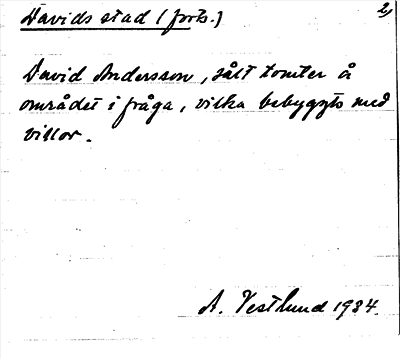 Davids stad (forts.) 2)
David Andersson, sålt tomter å
området i fråga, vilka bebyggts med
villor.
A. Vestlund 1934.